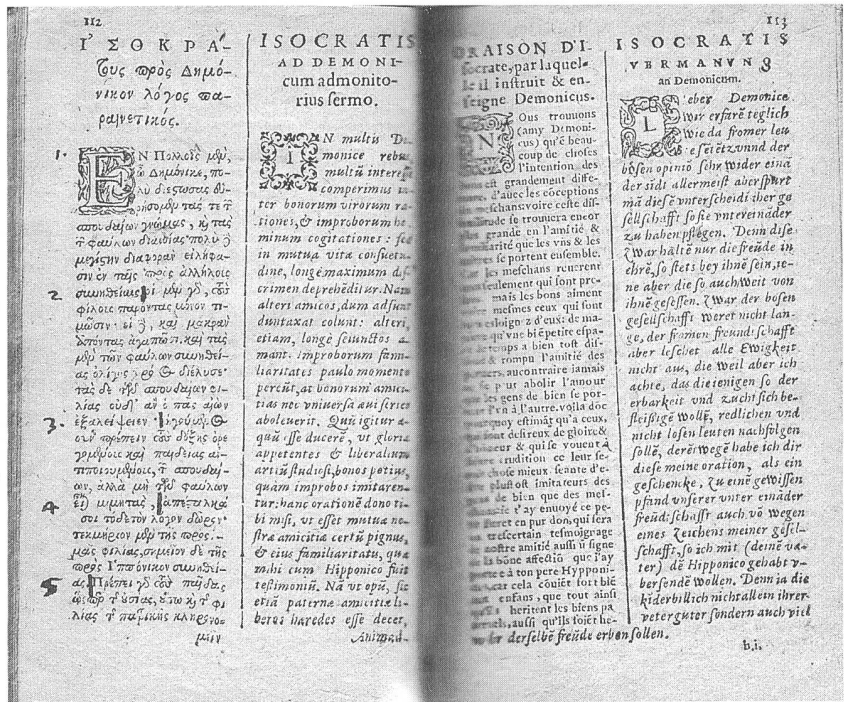 112
ἸΣΟΚΡΆ-
τους πρὸς Δημό-
νικον λόγος πα-
ραινετικός.
1.
ἘΝ Πολλοῖς μὲν,
ὦ Δημόνικε, πο-
λὺ διεστώσας εὑ-
ρήσομεν τάς τε τ
σπουδαίων γνώμας, κ τὰς
τ φαύλων διανοίας· πολὺ
μεγίστην διαφορὰν εἰλήφα-
σιν ἐν ταῖς πρὸς ἀλλήλοις
2
συνηθείαις οἱ μὲν γὸ, τοὺς
φίλους παρόντας μόνον τι-
μῶσιν· οἱ, καὶ μακρὰν
ἀπόντας ἀγαπῶσι. καὶ τὰς
μὲν τῶν φαύλων συνηθεί-
ας ὀλίγος διέλυσε·
τὰς δὲ σπουδαίων φι-
λίας οὐδ' ἂν ὁ πᾶς αἰὼν
3.
ἐξαλείψειεν·
οὖν πρέπειν τοὺς δόξης ὀρε
γομένους καὶ παιδείας ἀν-
τιποιουμένους, τ σπουδαί-
ων, ἀλλὰ μὴ φαύλων
4
μιμητὰς,
σοι τόνδε τὸν λόγον δῶρον·
τεκμήριον μὲν τῆς πρὸς
μᾶς φιλίας, σημεῖον δὲ τῆς
πρὸς Ἱππόνικον συνηθεί-
5
ας Πρέπει γὸ τοὺς παῖδας
ὥσπερ τ οὐσίας, οὕτω κ τ φι
λίας τ πατρικῆς κληρονο-
μεῖν
ISOCRATIS
AD DEMONI-
cum admonito-
rius sermo.
IN multis De
monice rebus
multũ interesse
comperimus in-
ter bonorum virorum ra
tiones, & improborum ho
minum cogitationes: sed
in mutua vita consuetu-
dine, longè maximum dis
crimen deprehẽditur. Nam
alteri amicos, dum adsunt
duntaxat colunt: alteri,
etiam, longè seiunctos a-
mant. Improborum fami-
liaritates paulo momento
percũt, at bonorum amici-
tias nec vniuersa æui series
aboleuerit. Quũ igitur æ-
quũ esse ducerẽ, vt gloriæ
appetentes & liberalium
artiũ studiosi, bonos potius,
quàm improbos imitaren-
tur: hanc orationẽ dono ti-
bi misi, vt esset mutuæ no-
stræ amicitiæ certũ pignus,
& eius familiaritatis, quæ
mihi cum Hipponico fuit
testimoniũ. Nã vt opũ, sic
etiã paternæ amicitiæ li-
beros hæredes esse decet,
Animad-
113
ORAISON D'I-
socrate, par laquel-
le il instruit & en-
seigne Demonicus.
NOus trouuons
(amy Demoni-
cus) qu'ẽ beau-
coup de choses
l'intention des
est grandement diffe-
d'auec les cõceptions
meschans, voire ceste dif-
se trouuera encor
grande en l'amitié &
que les vns & les
se portent ensemble.
les meschans reuerent
seulement qui sont pre-
mais les bons aiment
mesmes ceux qui sont
esloignez d'eux: de ma-
qu'vne biẽ petite espa-
temps a bien tost dis-
& rompu l'amitié des
aucontraire iamais
abolir l'amour
les gens de bien se por-
l'vn à l'autre. voila dõc
pourquoy estimãt qu'à ceux,
desireux de gloire &
& qui se vouent à
erudition ce leur se-
chose mieux seante d'e-
plustost imitateurs des
de bien que des mes-
t'ay enuoyé ce pe-
en pur don, qui sera
trescertain tesmoignage
nostre amitié aussi ũ signe
la bõne affectiõ que i'ay
à ton pere Hypponi-
cela cõuiẽt tort biẽ
enfans, que tout ainsi
heritent les biens pa
aussi qu'ils soiẽt he-
ISOCRATIS
VERMANVNG
an Demonicum.
Lieber Demonice
wir erfarẽ teglich
wie da fromer leu
vnnd der
bösen opiniõ sehr wider einã
der sidt allermeist aber spürt
mã diese vnterscheidt iher ge
sellschafft so sie vntereinãder
zu haben pflegen. Denn dise
zwar haltẽ nur die freüde in
ehrẽ, so stets bey ihnẽ sein, ie-
ne aber die so auch weit von
ihnẽ gesessen. Zwar der bösen
gesellschafft weret nicht lan-
ge, der framen freundtschafft
aber leschet alle Ewigkeit
nicht aus, die weil aber ich
achte, das die ienigen so der
erbarkeit vnd zucht sich be-
fleisige wollẽ, redlichen vnd
nicht losen leuten nachfolgen
sollẽ, deretwegẽ habe ich dir
diese meine oration, als ein
geschencke, zu einẽ gewissen
pfand vnserer vnter einãder
freüdtschafft auch võ wegen
eines zeichens meiner gesel-
schafft, so ich mit (deinẽ va-
ter) dẽ Hipponico gehabt v-
bersende wollen. Denn ia die
kĩder billich nicht allein ihrer
veter guter sondern auch viel
derselbẽ freüde erben sollen.
b.i.